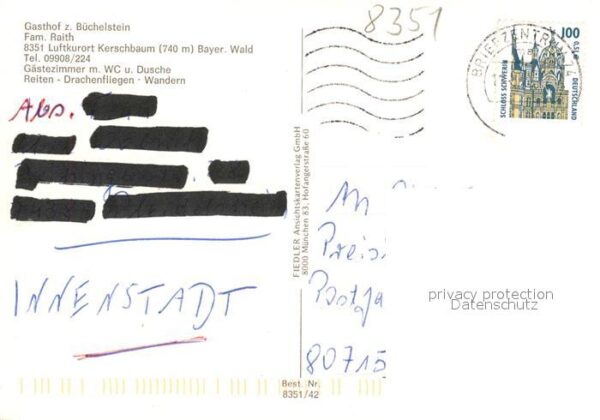 Gasthof z. Büchelstein
Fam. Raith
8351 Luftkurort Kerschbaum (740 m) Bayer. Wald
Tel. 09908/224
Gästezimmer m. WC u. Dusche
Reiten - Drachenfliegen - Wandern
8351
BRIEFZENTRUM 74
100
0,51€
SCHLOSS SCHWERIN
DEUTSCHLAND
Abs.
INNENSTADT
FIEDLER Ansichtskartenverlag GmbH
8000 München 83, Hofangerstraße 60
An
Preisi
Postfa
80715
privacy protection
Datenschutz
Best. Nr.
8351/42